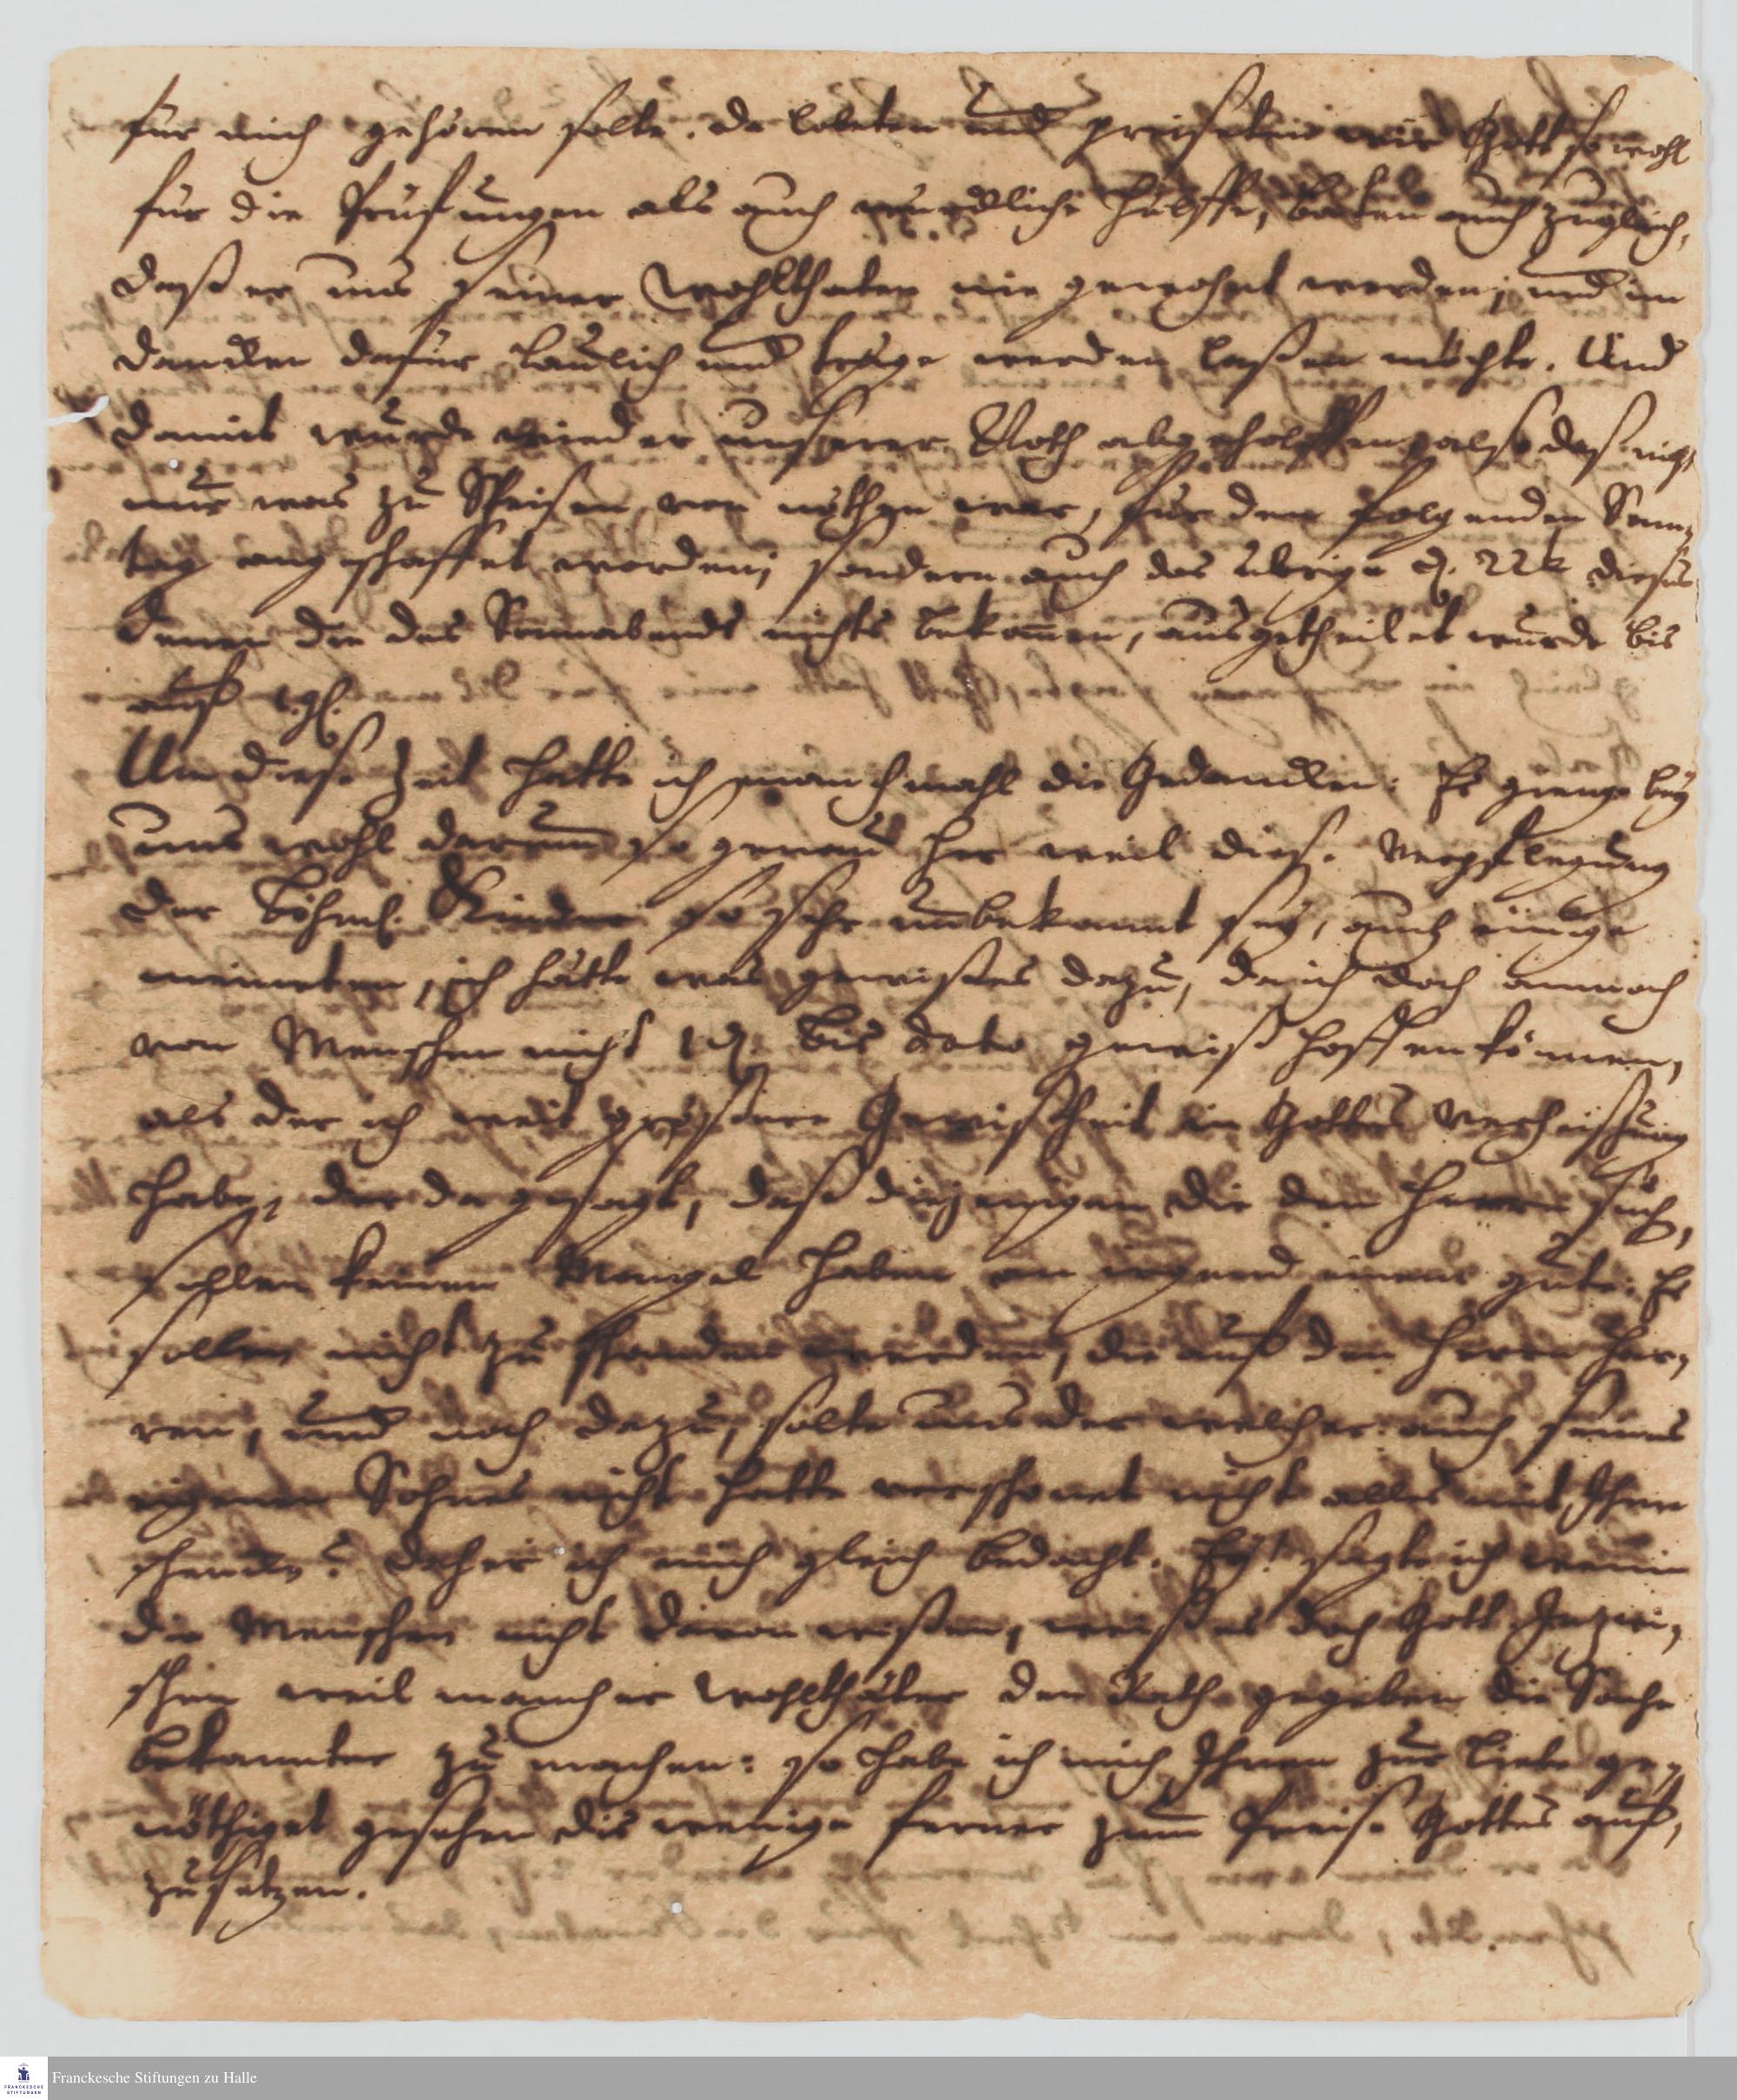 für mich gehören solte. da lobeten und preiseten wir Gott so wohl
für die Prüfungen als auch endliche Hülffe, baten auch zugleich,
daß er uns seiner Wohlthaten nie gewohnt werden, und im
dancken dafür laulich und träge werden laßen möchte. Und
damit wurde wieder unserer Noth abgeholffen, also daß nicht
nur was zu Speisen von nöthen war, für den folgenden Sonn,
tag angeschaffet worden, sondern auch das übrige 22 dieses
denen die des Sonnabends nichts bekomen, ausgetheilet wurde bis
auf 1 gl.
Um diese Zeit hatte ich manchmahl die Gedancken: Es gienge bey
uns wohl darum so genau her weil diese Verpflegung
der Böhm. Kinder so sehr unbekannt sey, auch einige
meineten, ich hätte was gewißes dazu, da ich doch annoch
von Menschen nicht 1 bis dato gewiß hoffen können,
als der ich weit größere Gewißheit in Gottes Verheißung
habe, der da gesagt, daß diejenigen die den Herrn such,
sollen keinen Mangel haben an irgend einem gute: Es
sollen nicht zu schanden werden, die auf den Herrn har,
ren, und noch dazu, solte uns der welcher auch seines
eigenen Sohnes nicht hatte verschonet nicht alles mit Ihm
schencken? daher ich mich gleich bedacht. Ey! sagte ich wenn
die Menschen nicht davon wißen, weiß es doch Gott. Inzwi,
schen weil mancher Wohlthäter den Rath gegeben die Sache
bekannter zu machen: so habe ich mich Ihnen zur Liebe ge,
nöthiget gesehen dis wenige ferner zum Preise Gottes auf,
zusetzen.
Franckesche Stiftungen zu Halle
FRANCKESCHE
STIFTUNGEN